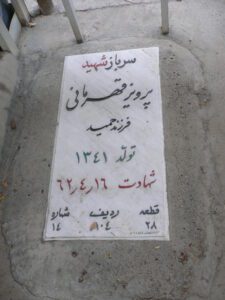 سرباز شهید
پرویز قهرمانی
فرزند حمید
تولد ۱۳۴۱
شهادت ۶۲٫۴٫۱۶
قطعه ردیف شماره
۲۸ ۱۰۴ ۱۴